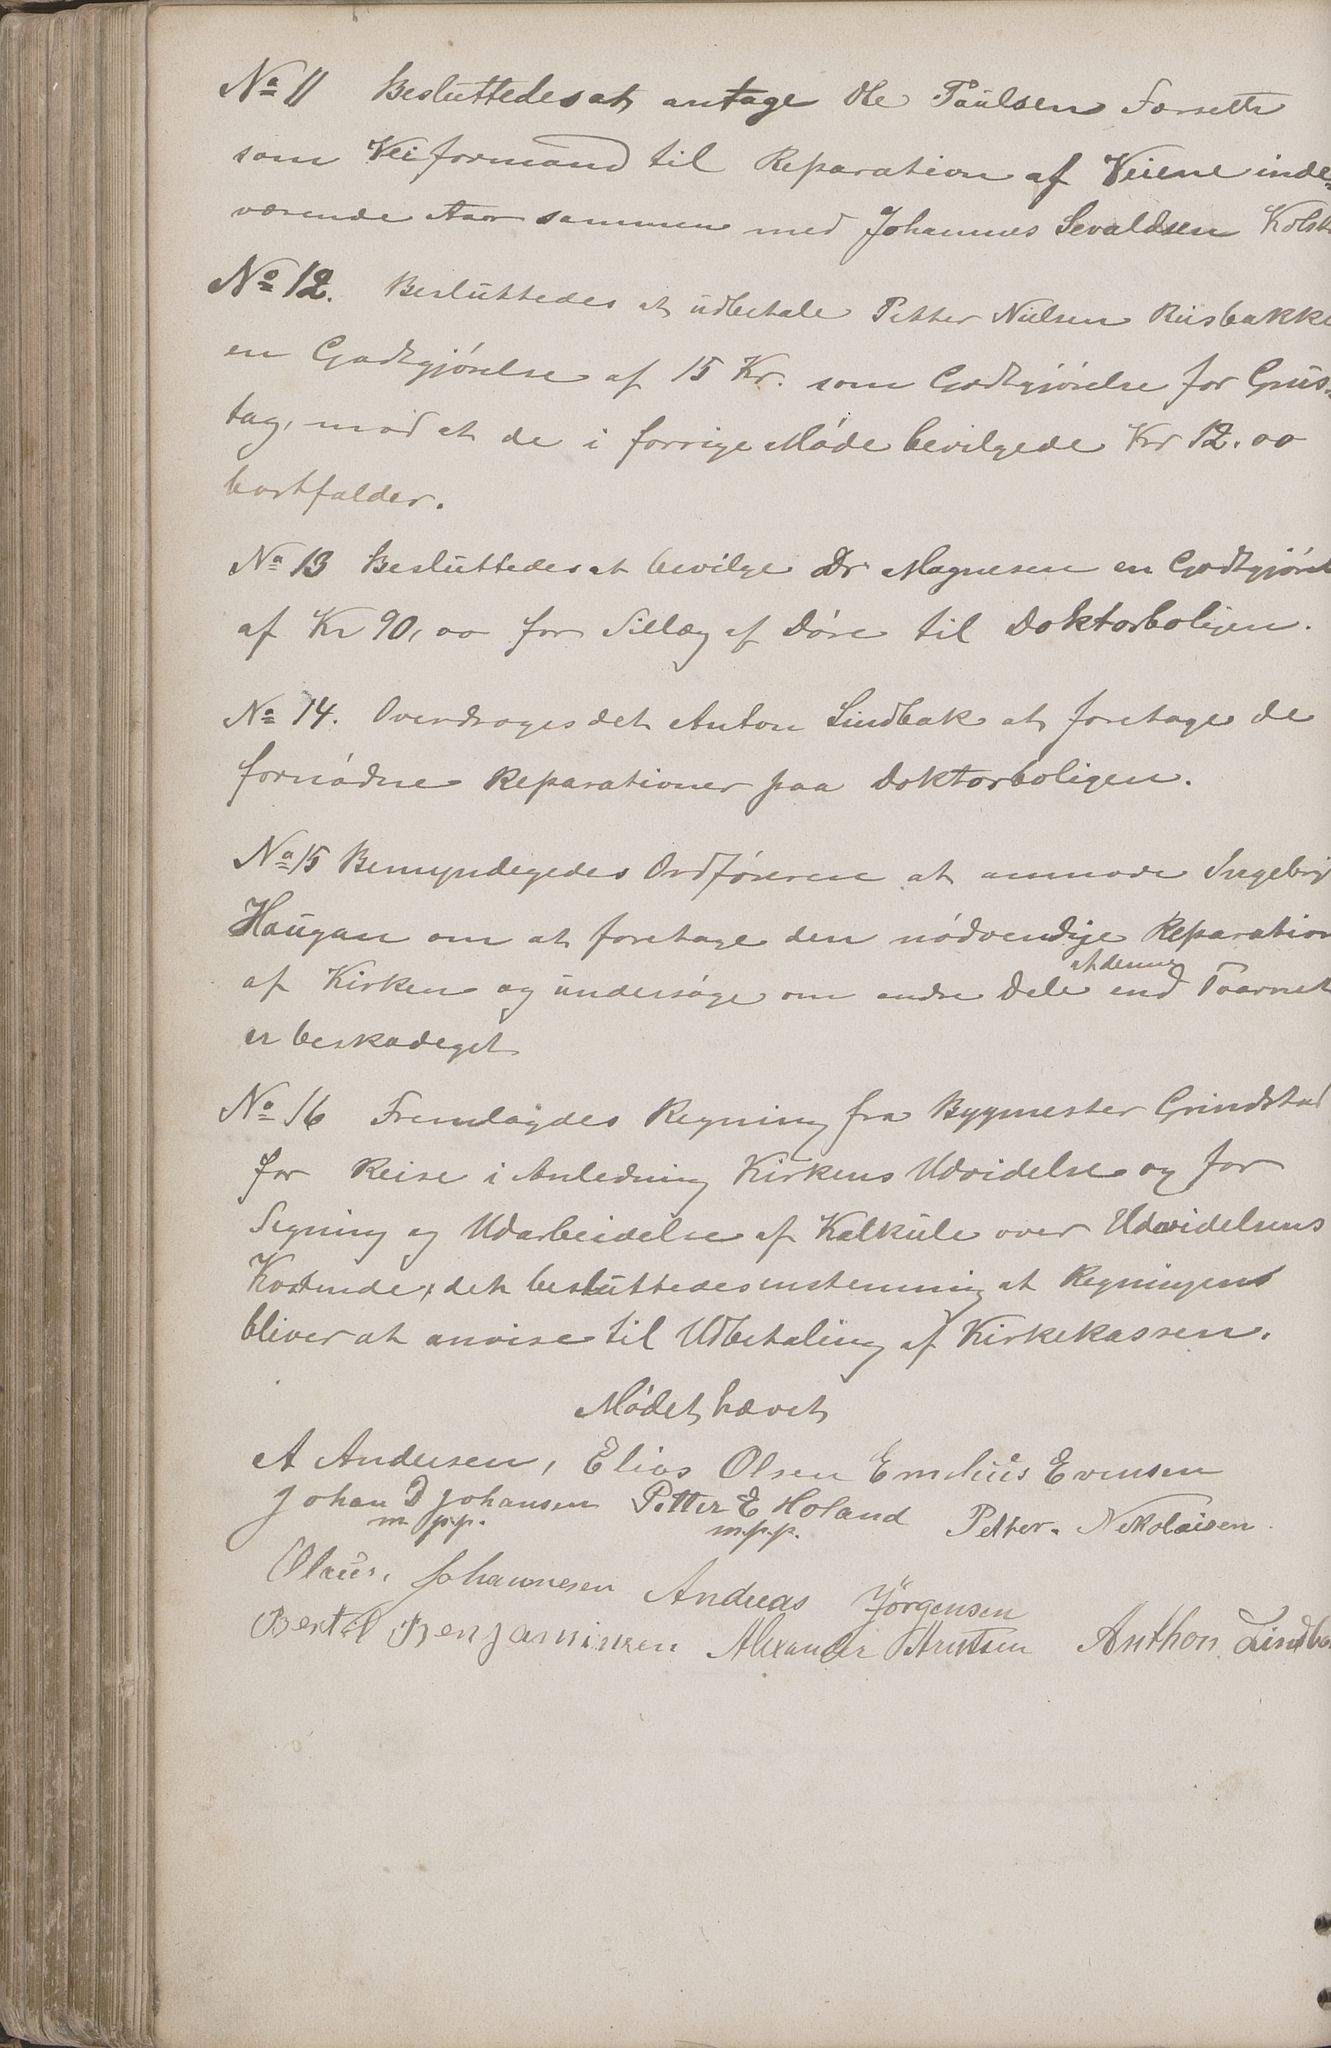 No 11 Besluttedes at antage Ole Paulsen Forseth
som Veiformand til Reparation af Veiene inde-
værende Aar sammen med Johannes Sevaldsen Kolst
No 12. Besluttedes at udbetale Petter Nielsen Riisbakke
en Godtgjørelse af 15 Kr. som Godtgjørelse for Grus-
tag, mod at de i forrige Møde bevilgede Kr 12.00
bortfalder.
No 13 Besluttedes at bevilge Dr Magnesen en Godtgjørel
af Kr 90,00 for Tillæg af Døre til Doktorboligen.
No 14. Overdroges det Anton Lindbak at foretage de
fornødne Reparationer paa Doktorboligen.
No 15 Bemyndigedes Ordføreren at anmode Ingebrigt
Haugan om at foretage den nødvendige Reparation
af Kirken og undersøge om andre Dele af denne end Taarnet
er beskadeget
No 16 Fremlagdes Regning fra Bygmester Grindstad
for Reise i Anledning Kirkens Udvidelse og for
Tegning og Udarbeidelse af Kalkule over Udvidelsens
Kostende; det besluttedes enstemmig at Regningen
bliver at anvise til Udbetaling af Kirkekassen.
Mødet hævet
A Andersen, Elias Olsen Emelius Evensen
Johan D Johansen Petter E Holand Petter. Nikolaisen
m p.p. m.p.p.
Olaus. Johannesen Andreas Jørgensen
Bertil Benjaminsen Alexander Arntsen Anthon Lindba